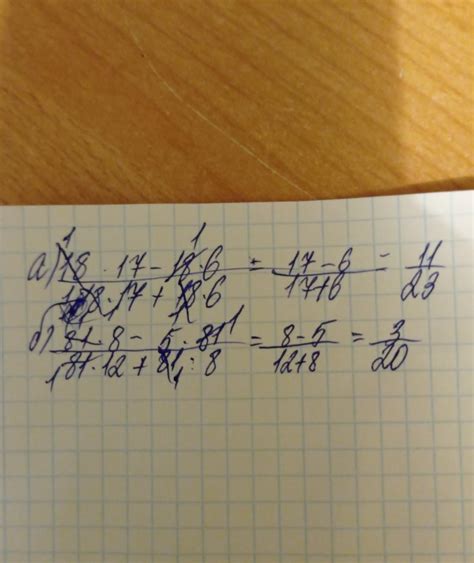 1 1
а) 18 · 17 − 18 · 6 / 18 · 17 + 18 · 6 = 17 − 6 / 17 + 6 = 11 / 23
1
б) 81 · 8 − 5 · 81 / 81 · 12 + 81 : 8 = 8 − 5 / 12 + 8 = 3 / 20
1 1